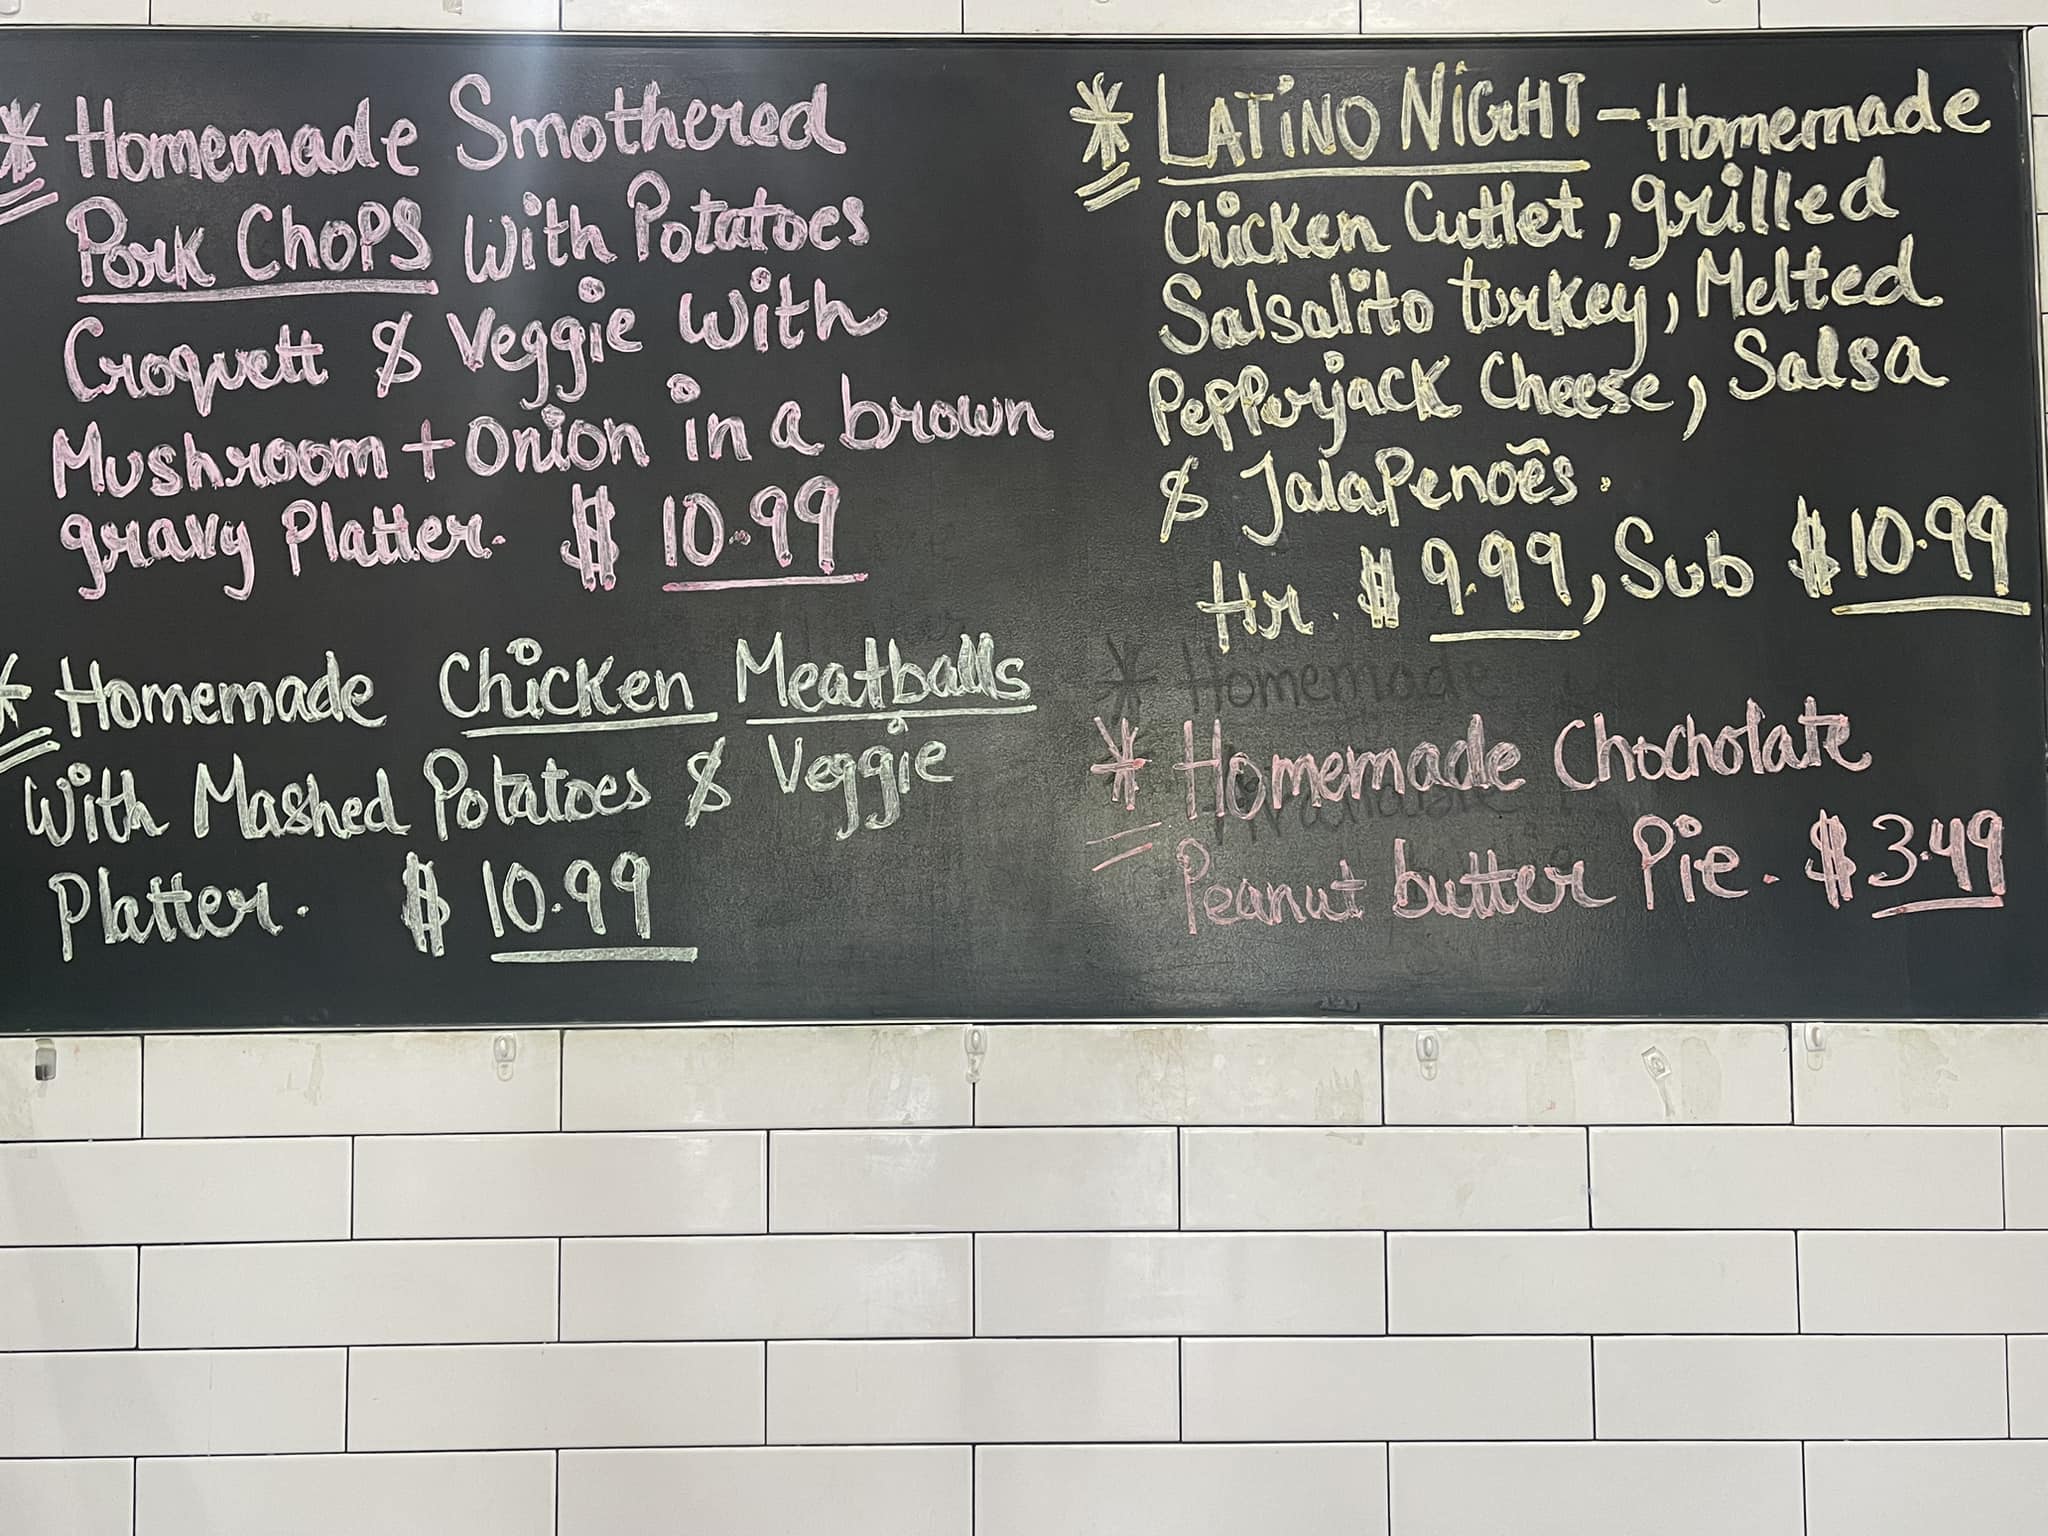 * Homemade Smothered
Pork Chops with Potatoes
Croquett & Veggie with
Mushroom + Onion in a brown
gravy Platter. $ 10.99
* Homemade Chicken Meatballs
with Mashed Potatoes & Veggie
Platter. $ 10.99
* LATINO NIGHT - Homemade
Chicken Cutlet, grilled
Salsalito turkey, Melted
Pepperjack Cheese, Salsa
& Jalapenoẽs.
Hr. $ 9.99, Sub $ 10.99
* Homemade
* Homemade Chocholate
Available
Peanut butter Pie. $ 3.49